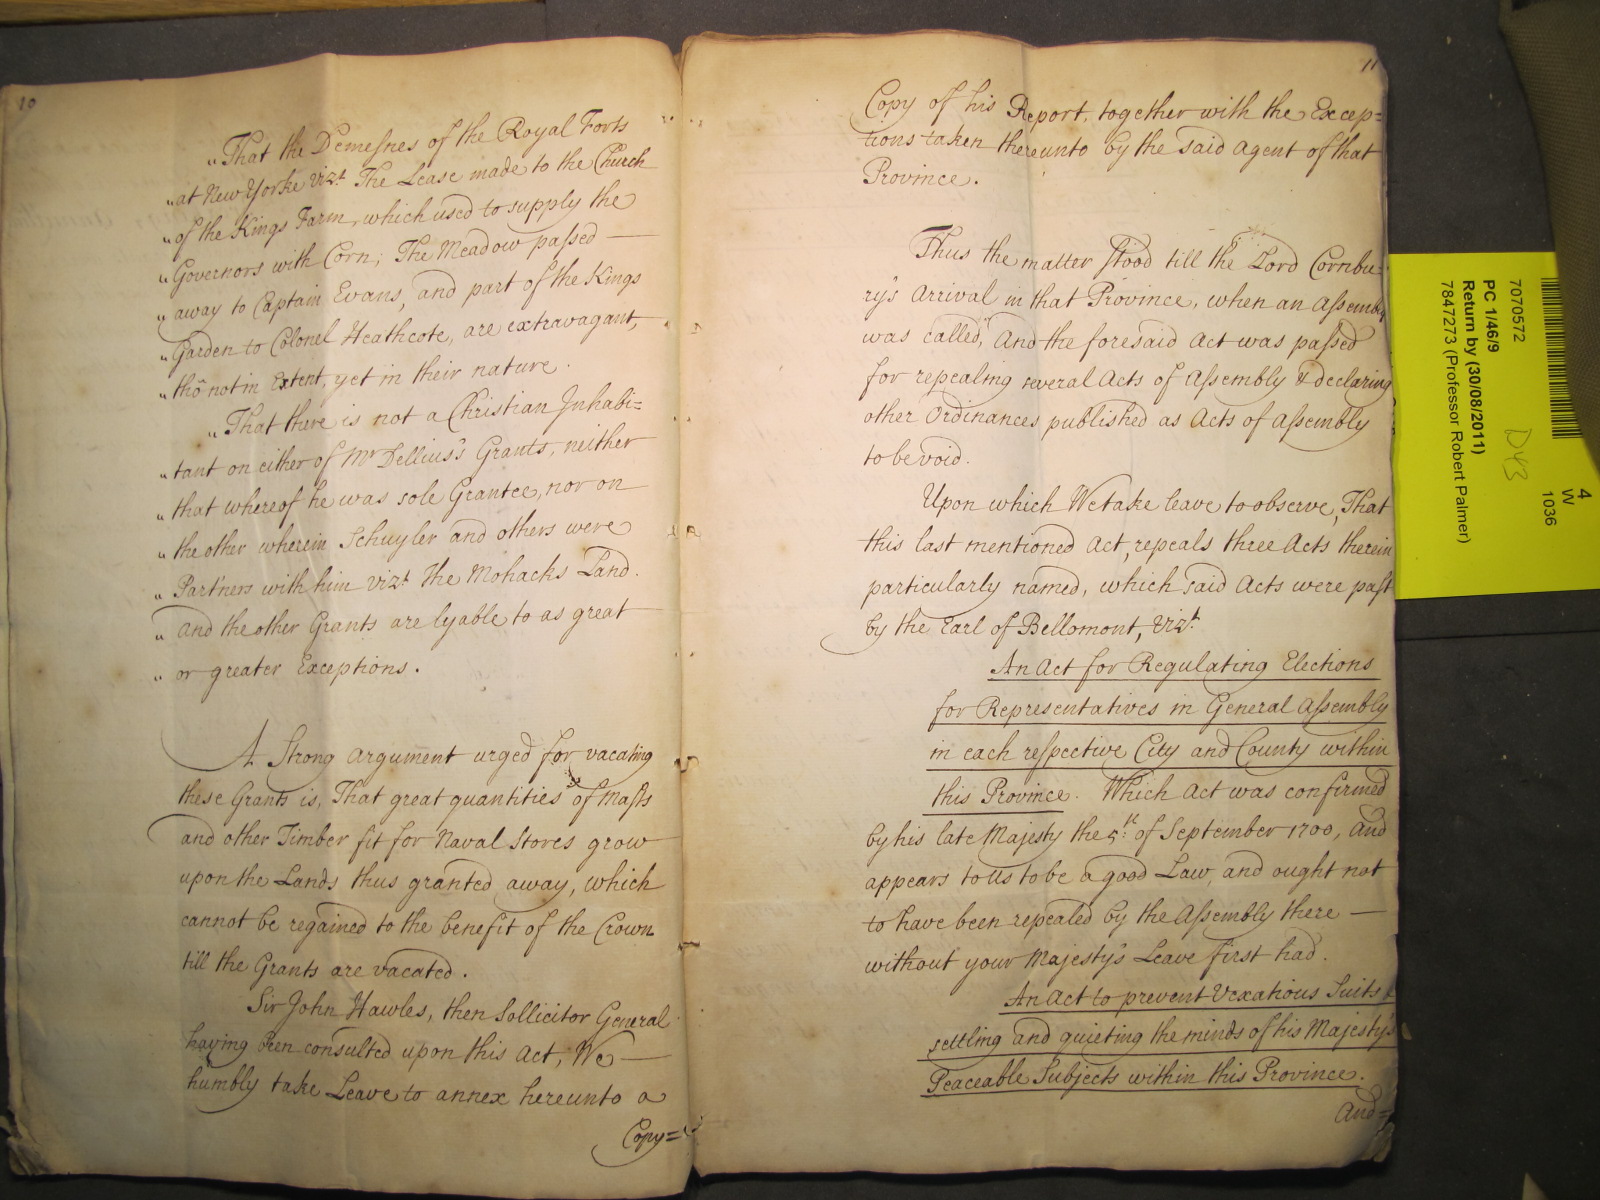 10
„That the Demesnes of the Royal Forts
„at New Yorke vizt The Lease made to the Church
„of the Kings Farm, which used to supply the
„Governors with Corn; The Meadow passed —
„away to Captain Evans, and part of the Kings
„Garden to Colonel Heathcote, are extravagant,
„tho not in Extent, yet in their nature.
„That there is not a Christian Inhabi=
„tant on either of Mr Dellius's Grants, neither
„that whereof he was sole Grantee, nor on
„the other wherein Schuyler and others were
„Partners with him vizt the Mohacks Land.
„And the other Grants are lyable to as great
„or greater Exceptions.
A Strong Argument urged for vacating
these Grants is, That great quantities of Masts
and other Timber fit for Naval Stores grow
upon the Lands thus granted away, which
cannot be regained to the benefit of the Crown
till the Grants are vacated.
Sir John Hawles, then Sollicitor General
having been consulted upon this Act, We —
humbly take Leave to annex hereunto a
Copy=
11
Copy of his Report, together with the Excep=
tions taken thereunto by the said Agent of that
Province.
Thus the matter stood till the Lord Cornbu=
ry's Arrival in that Province, when an Assembly
was called, And the foresaid Act was passed
for repealing several Acts of Assembly & declaring
other Ordinances published as Acts of Assembly
to be void.
Upon which We take leave to observe, That
this last mentioned Act, repeals three Acts therein
particularly named, which said Acts were past
by the Earl of Bellomont, Vizt
An Act for Regulating Elections
for Representatives in General Assembly
in each respective City and County within
this Province. Which Act was confirmed
by his late Majesty the 5th of September 1700, And
appears to Us to be a good Law, and ought not
to have been repealed by the Assembly there —
without your Majesty's Leave first had.
An Act to prevent Vexatious Suits &
settling and quieting the minds of his Majesty's
Peaceable Subjects within this Province.
And=
7070572
PC 1/46/9
Return by (30/08/2011)
7847273 (Professor Robert Palmer)
D43
4
W
1036